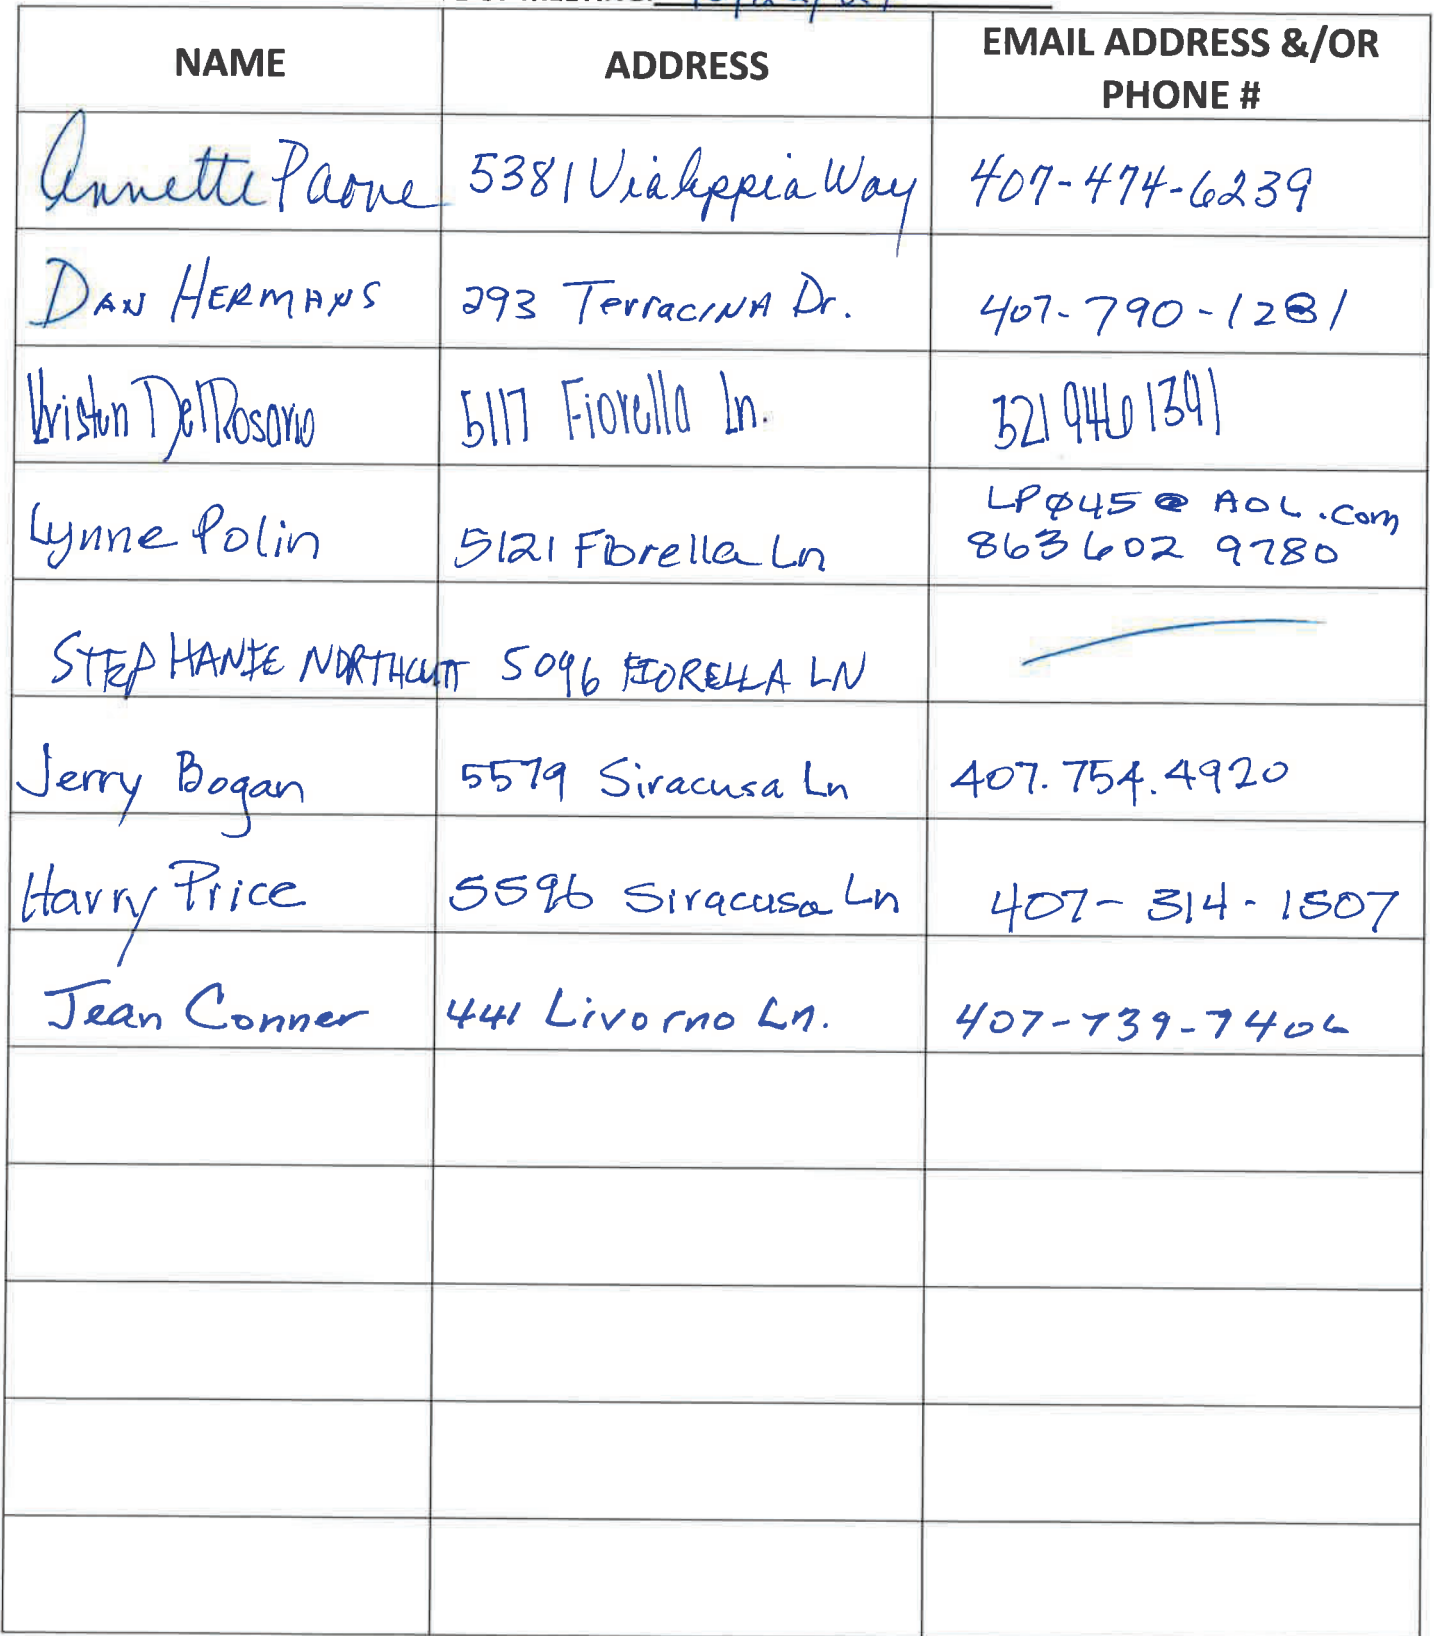 NAME ADDRESS EMAIL ADDRESS &/OR
PHONE #
Annette Paone 5381 Via Appia Way 407-474-6239
DAN HERMANS 293 TerraciNA Dr. 407-790-1281
Kristin Del Rosario 5117 Fiorella Ln. 321 946 1391
Lynne Polin 5121 Fiorella Ln LPØ45@AOL.com
863 602 9780
STEPHANIE NORTHCUTT 5096 FIORELLA LN
Jerry Bogan 5579 Siracusa Ln 407.754.4920
Harry Price 5596 Siracusa Ln 407-314-1507
Jean Conner 441 Livorno Ln. 407-739-7406